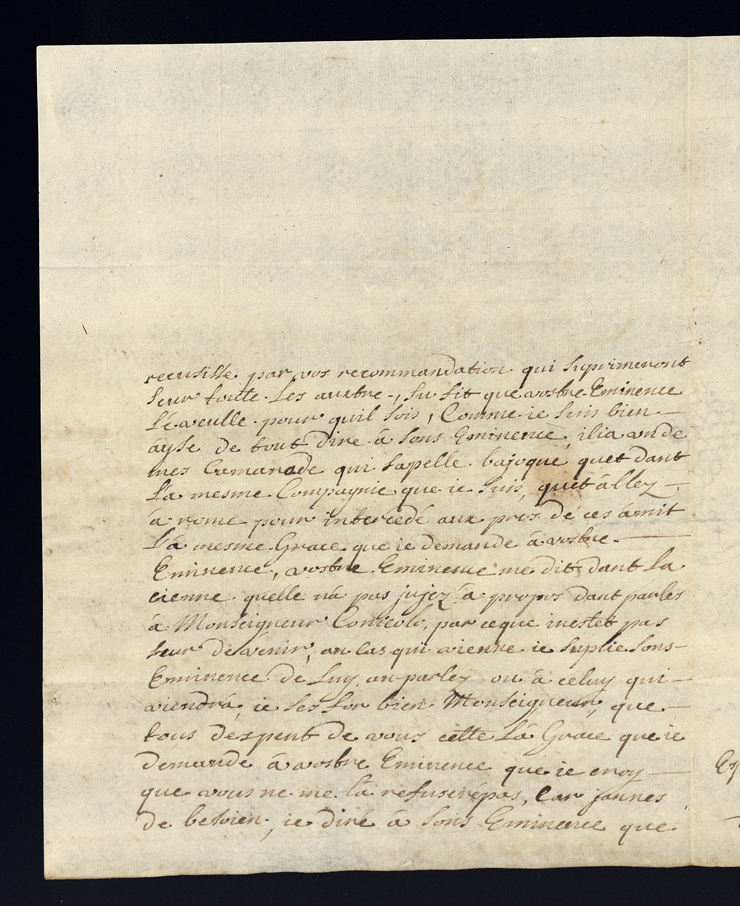 reeusisse par vos recommandation qui suprimeront
seur toutte les austre, su fit que vostre Eminence
Lé veulle pour quil sois, Comme ie suis bien
ayse de tout dire à sons Eminence, ilia un de
mes Camarade qui sapelle bajoque quet dant
la mesme Compagnie que ie suis, quet allez
à rome pour intercedé aux pres de ces amit
la mesme Grace que ie demande à vostre
Eminence, vostre Eminence me dit dant la
cienne quelle na pas jujez à propos dant parles
à Monseigneur par ceque inestet pas
seur de venir, an cas qui vienne ie suplie sons
Eminence de Luy an parlez ou à celuy qui
viendra, ie ses for bien Monseigneur, que
tous despent de vous cette la Grace que ie
demande à vostre Eminence que ie croy
que vous ne me la refuserépas, Car jannes
de besoien, ie diré à sons Eminence que